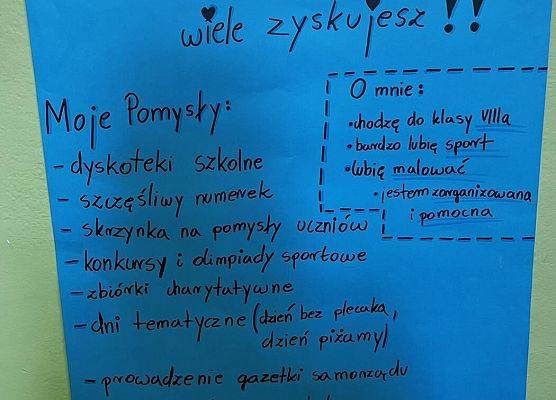 wiele zyskujesz !!
O mnie:
• chodzę do klasy VIIIa
• bardzo lubię sport
• lubię malować
• jestem zorganizowana
i pomocna
Moje Pomysły:
- dyskoteki szkolne
- szczęśliwy numerek
- skrzynka na pomysły uczniów
- konkursy i olimpiady sportowe
- zbiórki charytatywne
- dni tematyczne (dzień bez plecaka,
dzień piżamy)
- prowadzenie gazetki samorządu